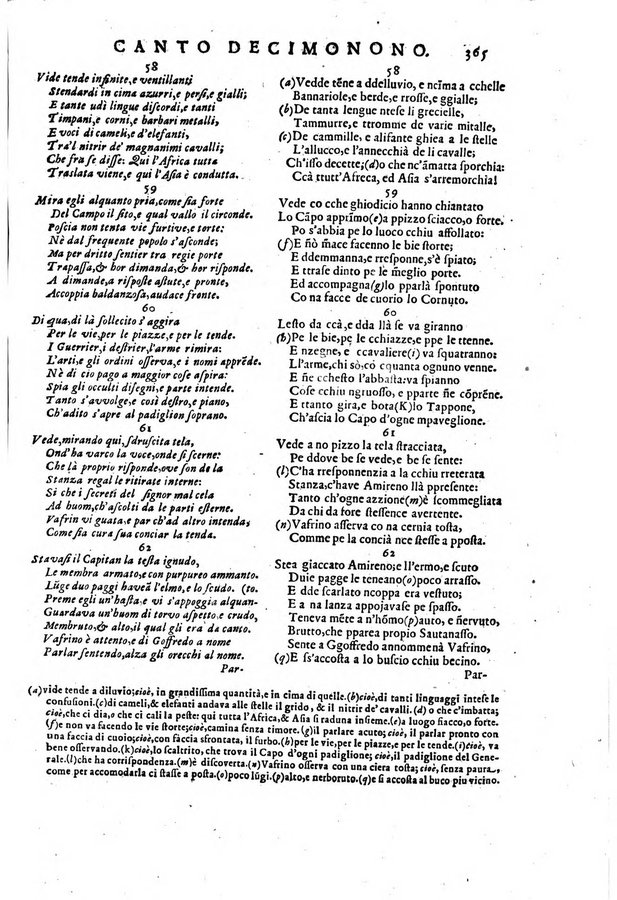 CANTO DECIMONONO. 365
58
Vide tende infinite, e ventillanti
Stendardi in cima azzurri, e persi, e gialli;
E tante udì lingue discordi, e tanti
Timpani, e corni, e barbari metalli,
E voci di cameli, e d'elefanti,
Tra'l nitrir de' magnanimi cavalli;
Che fra se disse: Quì l'Africa tutta
Traslata viene, e quì l'Asia è condutta.
59
Mira egli alquanto pria, come sia forte
Del Campo il sito, e qual vallo il circonde.
Poscia non tenta vie furtive, e torte:
Nè dal frequente popolo s'asconde;
Ma per dritto sentier tra regie porte
Trapassa, & hor dimanda, & hor risponde.
A dimande, a risposte astute, e pronte,
Accoppia baldanzosa, audace fronte.
60
Di quà, di là sollecito s'aggira
Per le vie, per le piazze, e per le tende.
I Guerrier, i destrier, l'arme rimira:
L'arti, e gli ordini osserva, e i nomi apprēde.
Nè di ciò pago a maggior cose aspira:
Spia gli occulti disegni, e parte intende.
Tanto s'avvolge, e così destro, e piano,
Ch'adito s'apre al padiglion soprano.
61
Vede, mirando quì, sdruscita tela,
Ond'ha varco la voce, onde si scerne:
Che là proprio risponde, ove son de la
Stanza regal le ritirate interne:
Sì che i secreti del signor mal cela
Ad huom, ch'ascolti da le parti esterne.
Vafrin vi guata, e par ch'ad altro intenda;
Come sia cura sua conciar la tenda.
62
Stavasi il Capitan la testa ignudo,
Le membra armato, e con purpureo ammanto.
Lūge duo paggi haveā l'elmo, e lo scudo. (to.
Preme egli un'hasta, e vi s'appoggia alquan-
Guardava un'huom di torvo aspetto, e crudo,
Membruto, & alto, il qual gli era da canto.
Vafrino è attento, e di Goffredo a nome
Parlar sentendo, alza gli orecchi al nome.
Par-
58
(a)Vedde tēne a ddelluvio, e ncīma a cchelle
Bannariole; e berde, e rrosse, e ggialle;
(b)De tanta lengue ntese li grecielle,
Tammurre, e ttromme de varie mitalle,
(c)De cammille, e alifante ghiea a le stelle
L'allucco, e l'annecchià de li cavalle;
Ch'isso decette; (d)o che nc'ámatta sporchia:
Ccà ttutt'Afreca, ed Asia s'arremorchia!
59
Vede co cchè ghiodicio hanno chiantato
Lo Cāpo apprīmo(e)a ppizzo sciacco, o forte.
Po s'abbia pe lo luoco cchiu affollato:
(f)E ñò mace facenno le bie storte;
E ddemmanna, e rresponne, s'è spiato;
E ttrase dinto pe le mēglio porte.
Ed accompagna(g)lo pparlà spontuto
Co na facce de cuorio lo Cornuto.
60
Lesto da ccà, e dda llà se va giranno
(h)Pe le bie, pe le cchiazze, e ppe le ttenne.
E nzegne, e ccavaliere(i)va squatranno:
Ll'arme, chi sò, cō equanta ognuno venne.
E ñe cchesto l'abbasta: va spianno
Cose cchiu ngruosso, e pparte ñe cōprēne.
E ttanto gira, e bota(K)lo Tappone,
Ch'ascia lo Capo d'ogne mpaveglione.
61
Vede a no pizzo la tela stracciata,
Pe ddove be se vede, e be se sente:
(l)C'ha rresponnenzia a la cchiu rreterata
Stanza, c'have Amireno llà ppresente:
Tanto ch'ogne azzione(m)è scommegliata
Da chi da fore stessence avertente.
(n)Vafrino asserva co na cernia tosta,
Comme pe la concià nce stesse a pposta.
62
Stea giaccato Amireno; e ll'ermo, e scuto
Duie pagge le teneano(o)poco arrasso.
E dde scarlato ncoppa era vestuto;
E a na lanza appojavase pe spasso.
Teneva mēte a n'hōmo(p)auto, e ñervuto,
Brutto, che pparea propio Sautanasso.
Sente a Ggoffredo annommenà Vafrino,
(q)E ss'accosta a lo buscio cchiu becino.
Par-
(a)vide tende a diluvio; cioè, in grandissima quantità, e in cima di quelle. (b)cioè, di tanti linguaggi intese le
confusioni. (c)di cameli, & elefanti andava alle stelle il grido, & il nitrir de' cavalli. (d) o che c'imbatta;
cioè, che ci dia, o che ci cali la peste: quì tutta l'Africa, & Asia si raduna insieme. (e)a luogo fiacco, o forte.
(f)e non va facendo le vie storte; cioè, camina senza timore. (g)il parlare acuto; cioè, il parlar pronto con
una faccia di cuoio; cioè, con faccia sfrontata, il furbo. (h)per le vie, per le piazze, e per le tende. (i)cioè, va
bene osservando. (k)cioè, lo scaltrito, che trova il Capo d'ogni padiglione; cioè, il padiglione del Gene-
rale. (l)che ha corrispondenza. (m)è discoverta. (n)Vafrino osserva con una ciera tosta; cioè, senza paura,
come per accomodarla ci stasse a posta. (o)poco lūgi. (p)alto, e nerboruto. (q)e si accosta al buco piu vicino.